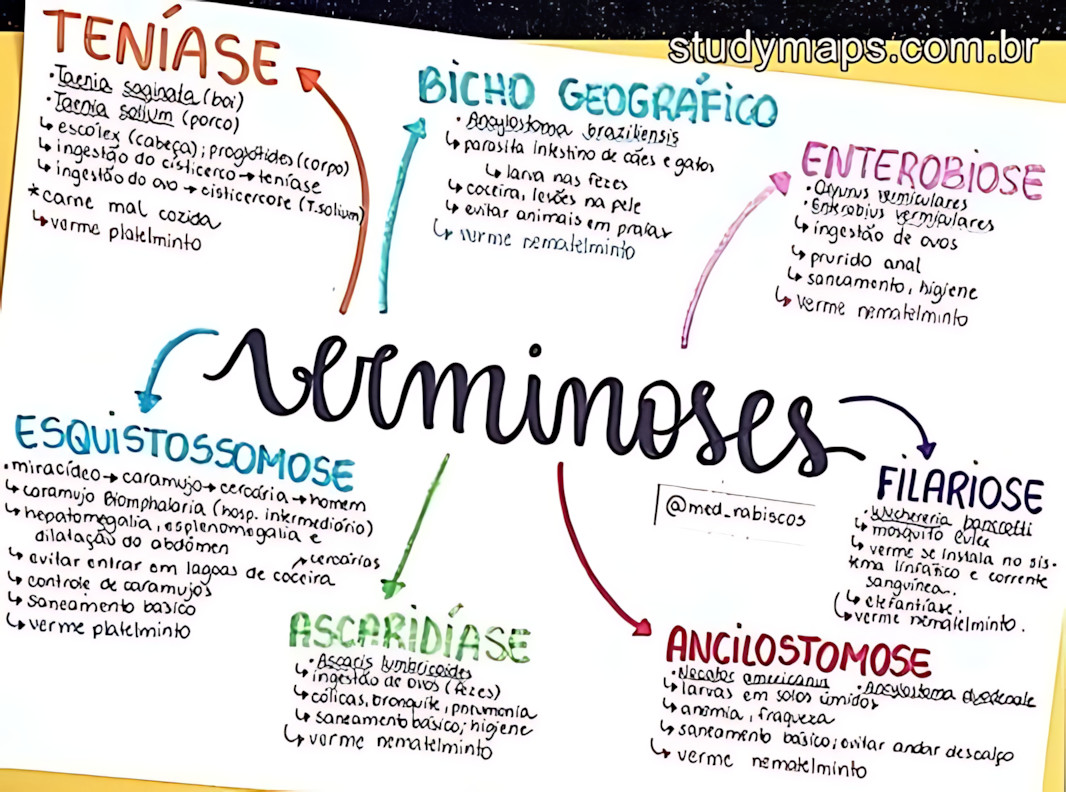 studymaps.com.br
TENÍASE
• Taenia saginata (boi)
• Taenia solium (porco)
↳ escólex (cabeça); proglótides (corpo)
↳ ingestão do cisticerco → teníase
↳ ingestão do ovo → cisticercose (T.solium)
* carne mal cozida
↳ verme platelminto
BICHO GEOGRÁFICO
• Ancylostoma braziliensis
↳ parasita intestino de cães e gatos
↳ larva nas fezes
↳ coceira, lesões na pele
↳ evitar animais em praias
↳ verme nematelminto
ENTEROBIOSE
• Oxyurus vermiculares
• Enterobius vermiculares
↳ ingestão de ovos
↳ prurido anal
↳ saneamento, higiene
↳ verme nematelminto
verminoses
ESQUISTOSSOMOSE
• miracídeo → caramujo → cercária → homem
↳ caramujo Biomphalaria (hosp. intermediário)
↳ hepatomegalia, esplenomegalia e
dilatação do abdômen
↳ evitar entrar em lagoas de coceira
↗ cercárias
↳ controle de caramujos
↳ saneamento básico
↳ verme platelminto
FILARIOSE
• Wuchereria bancrofti
↳ mosquito culex
↳ verme se instala no sis-
tema linfático e corrente
sanguínea.
↳ elefantíase.
↳ verme nematelminto.
@med_rabiscos
ASCARIDÍASE
• Ascaris lumbricoides
↳ ingestão de ovos (fezes)
↳ cólicas, bronquite, pneumonia
↳ saneamento básico; higiene
↳ verme nematelminto
ANCILOSTOMOSE
• Necator americanus • Ancylostoma duodenale
↳ larvas em solos úmidos
↳ anemia, fraqueza
↳ saneamento básico; evitar andar descalço
↳ verme nematelminto